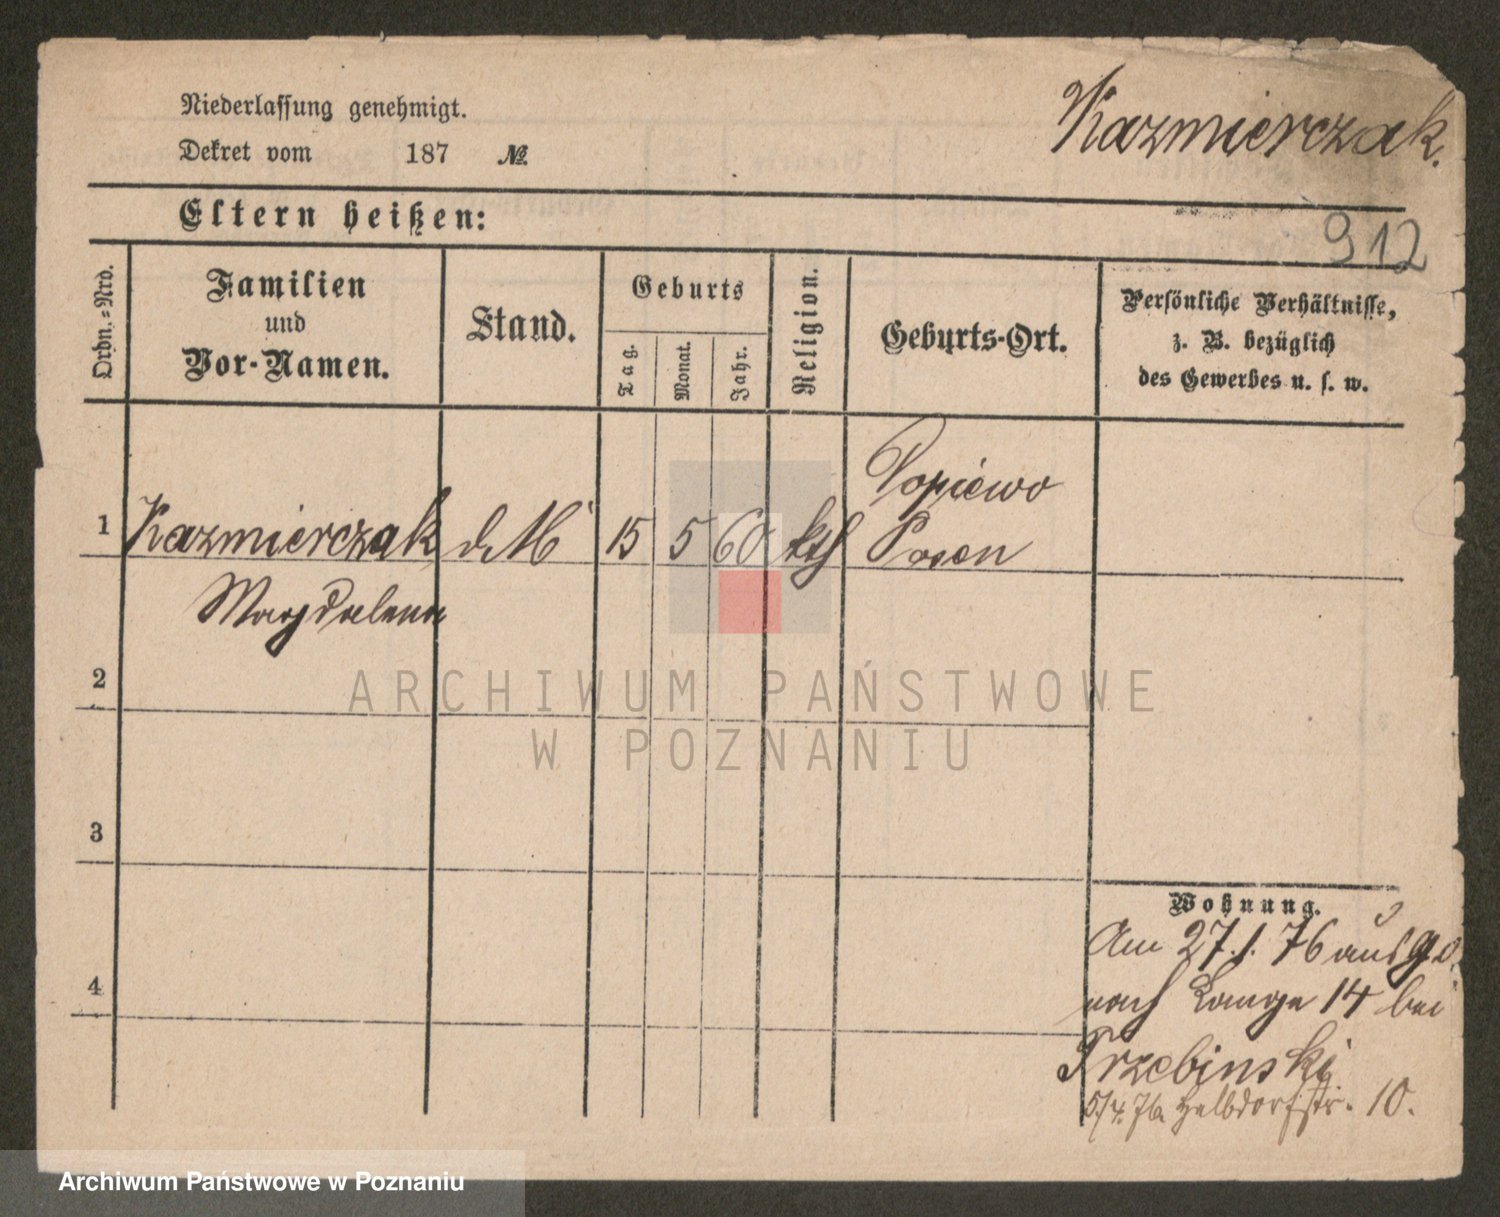 Niederlassung genehmigt.
Dekret vom 187 №
Kazmierczak.
Eltern heißen:
912
Ordn.=Nro.
Familien
und
Vor-Namen.
Stand.
Geburts
Tag.
Monat.
Jahr.
Religion.
Geburts-Ort.
Persönliche Verhältnisse,
z. B. bezüglich
des Gewerbes u. s. w.
Dopiewo
1 Kazmierczak d. M 15 5 60 kth Posen
Magdalena
2
3
4
Wohnung.
Am 27. 1. 76
nach Lange 14 bei
Trzebinski
5/4. 76. Halbdorfstr. 10.
ARCHIWUM PAŃSTWOWE
W POZNANIU
Archiwum Państwowe w Poznaniu